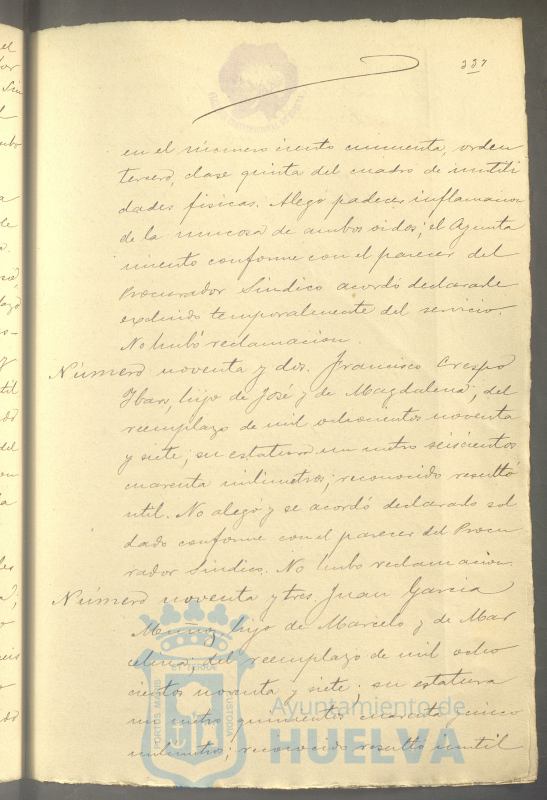 337
en el número ciento cincuenta, orden
tercero, clase quinta del cuadro de inutili
dades físicas. Alegó padecer inflamacion
de la mucosa de ambos oidos; el Ayunta
miento conforme con el parecer del
Procurador Sindico acordó declararle
excluido temporalmente del servicio.
No hubo reclamacion.
Número noventa y dos. Francisco Crespo
hijo de José y de Magdalena; del
reemplazo de mil ochocientos noventa
y siete; su estatura un metro seiscientos
cuarenta milimetros; reconocido resultó
util. No alegó y se acordó declararlo sol
dado conforme con el parecer del Procu
rador Sindico. No hubo reclamacion.
Número noventa y tres. Juan Garcia
Muñoz, hijo de Marcelo y de Mar
celina; del reemplazo de mil ocho
cientos noventa y siete; su estatura
un metro quinientos cuarenta y cinco
milimetros; reconocido resultó inutil
PORTUS MARIS ET TERRÆ CUSTODIA
Ayuntamiento de
HUELVA